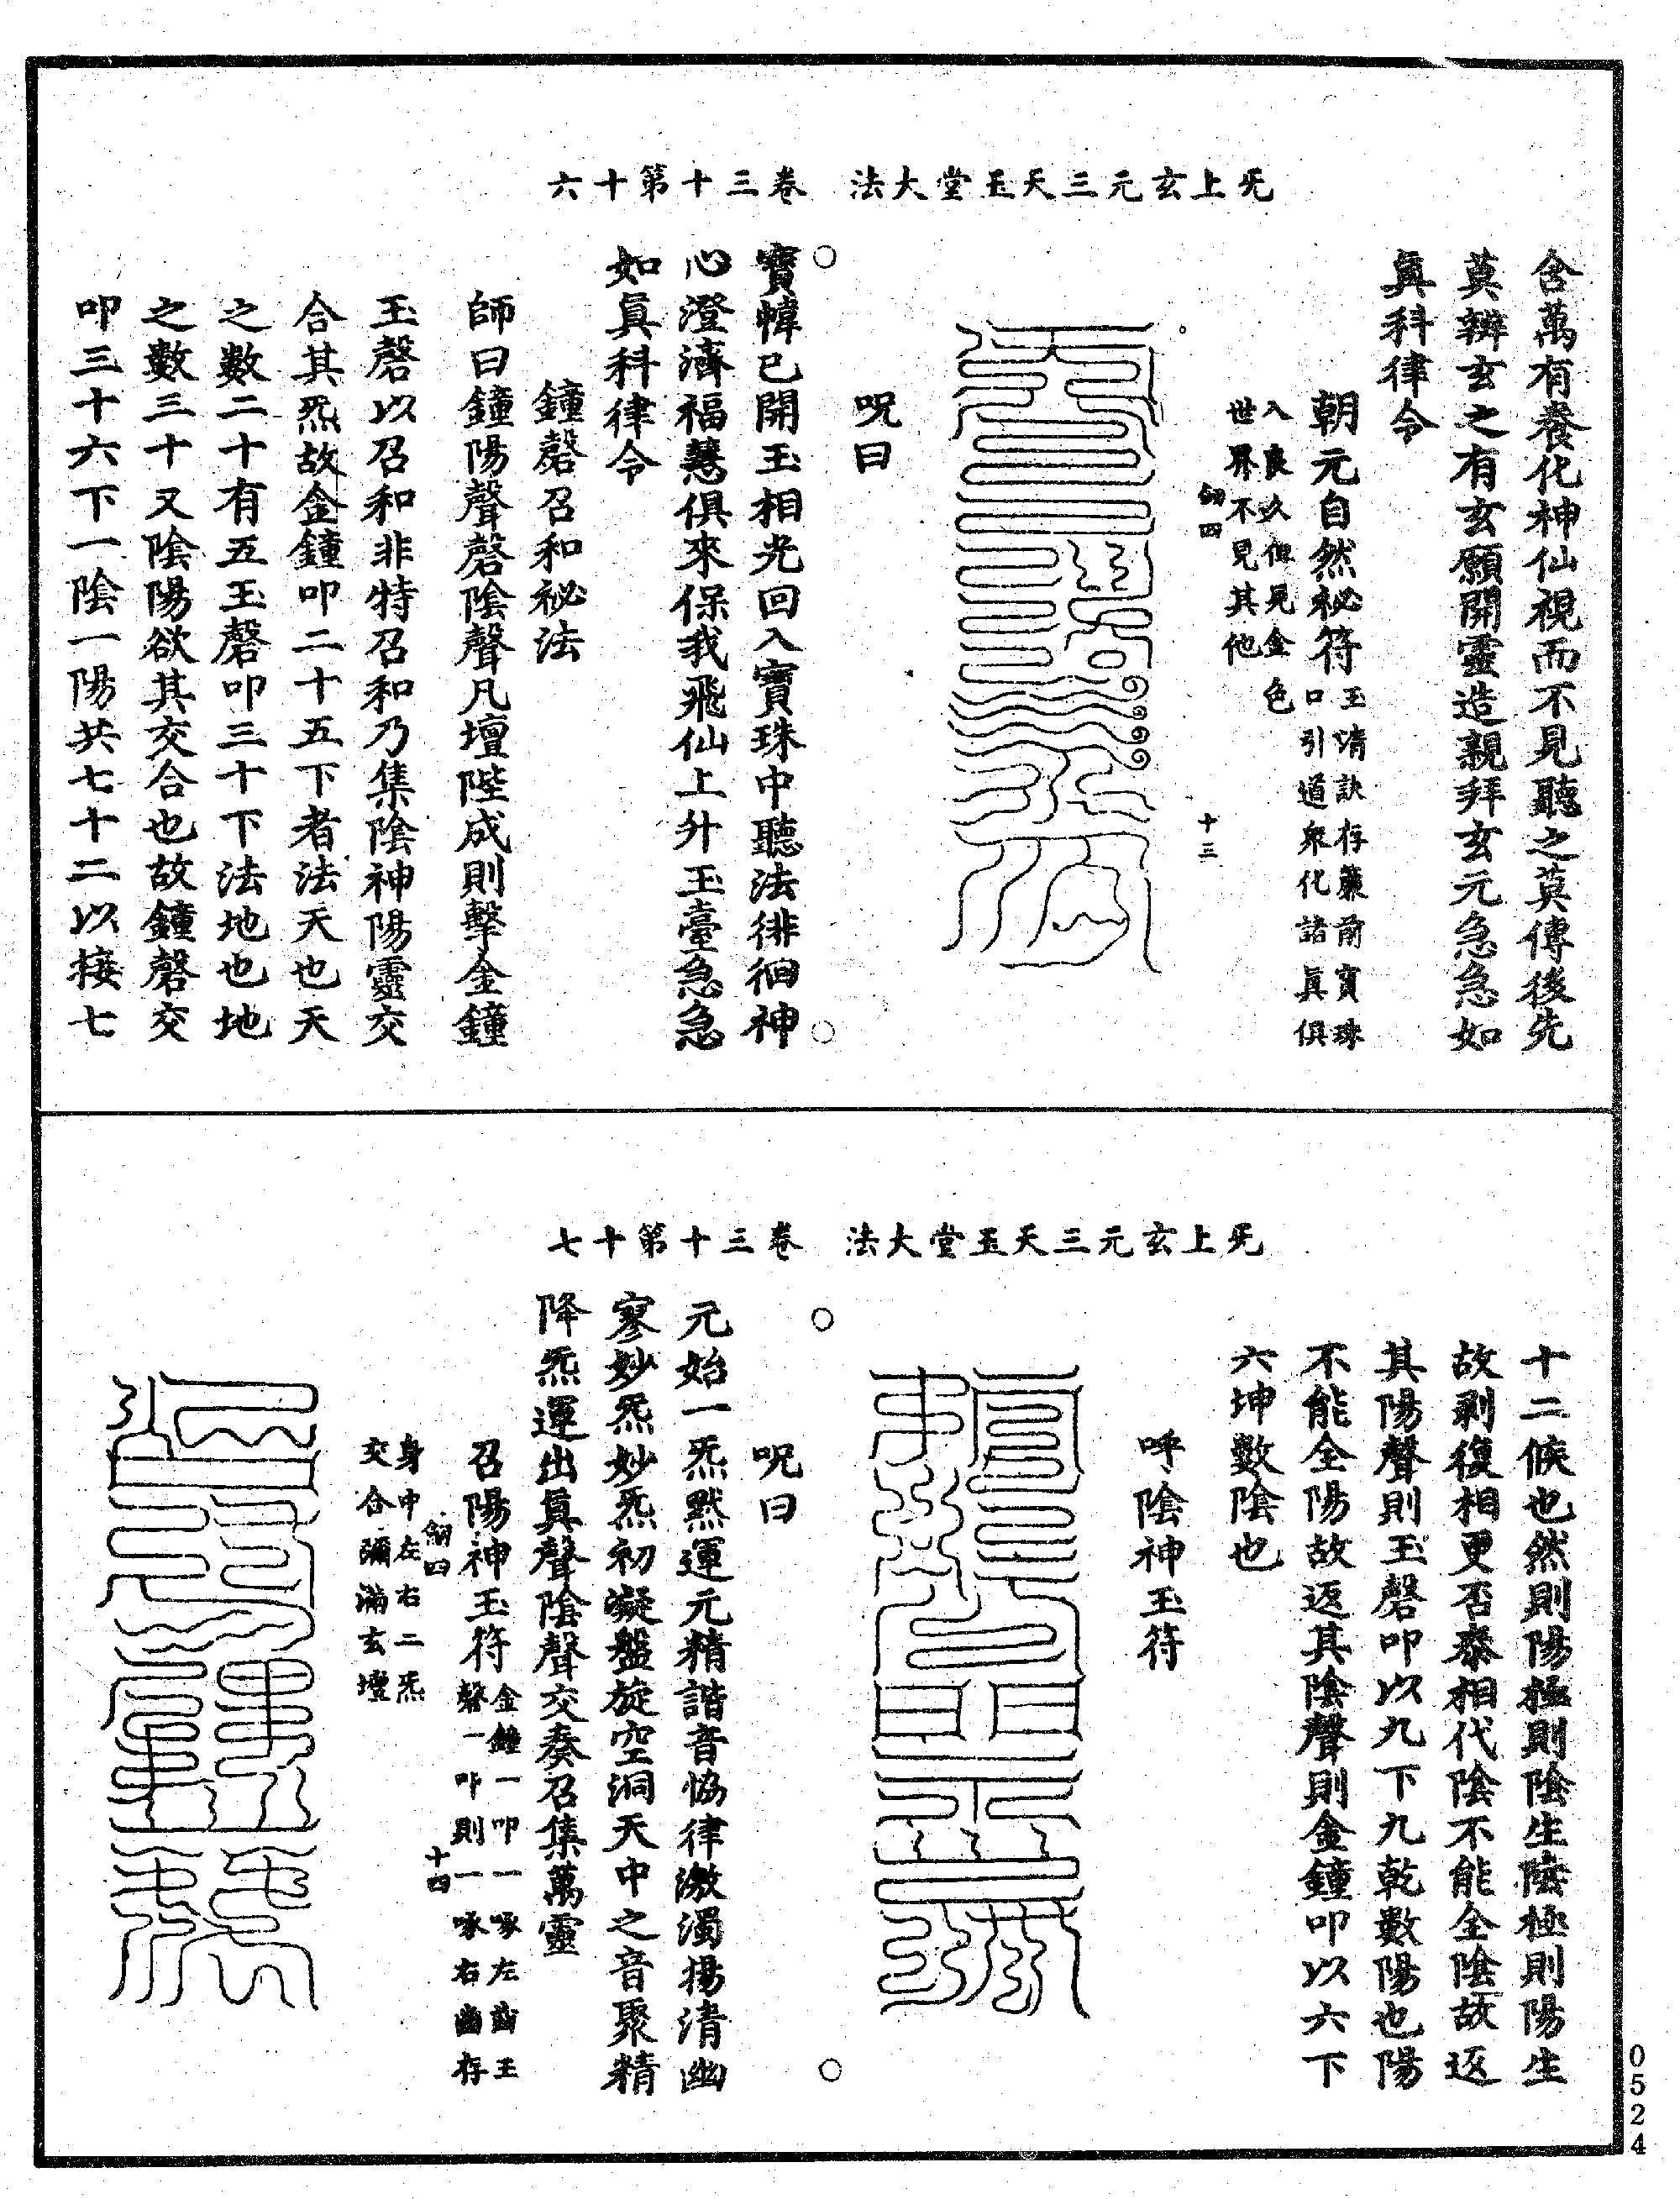 旡上玄元三天玉堂大法　卷三十第十六
含萬有養化神仙視而不見聽之莫傳後先
莫辨玄之有玄願開靈造親拜玄元急急如
眞科律令
朝元自然祕符
玉清訣存黍前寳珠
口引道衆化諸眞俱
入良久但見金色
世界不見其他
十三
呪曰
寳幃已開玉相光回入寳珠中聽法徘徊神
心澄濟福慧俱來保我飛仙上升玉臺急急
如眞科律令
鐘磬召和祕法
師曰鐘陽聲磬陰聲凡壇陛成則擊金鐘
玉磬以召和非特召和乃集陰神陽靈交
合其炁故金鐘叩二十五下者法天也天
之數二十有五玉磬叩三十下法地也地
之數三十又陰陽欲其交合也故鐘磬交
叩三十六下一陰一陽共七十二以接七
旡上玄元三天玉堂大法　卷三十第十七
十二候也然則陽極則陰生陰極則陽生
故剥復相更否泰相代陰不能全陰故返
其陽聲則玉磬叩以九下九乾數陽也陽
不能全陽故返其陰聲則金鐘叩以六下
六坤數陰也
呼陰神玉符
呪曰
元始一炁黙運元精諧音恊律激濁揚清幽
寥妙炁妙炁初凝盤旋空洞天中之音聚精
降炁運出眞聲陰聲交奏召集萬靈
召陽神玉符
金鐘一叩一啄左齒玉
磬一叩則一啄右齒存
十四
身中左右二炁
交合彌滿玄壇
0524